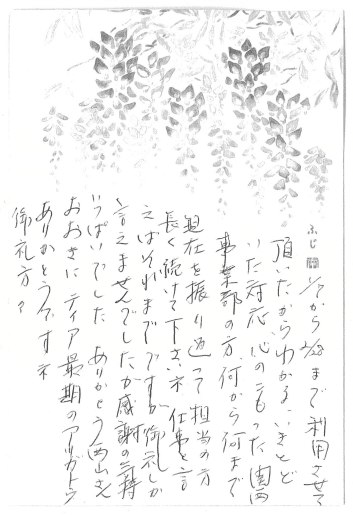 ふじ
1/7から2/28まで利用させて
頂いたからわかる、いきとど
いた対応 心のこもった関西
事業部の方、何から何まで
現在を振り返って担当の方
長く続けて下さいネ 仕事と言
えばそれまでですが御礼しか
言えませんでしたが感謝の気持
いっぱいでした ありがとう西山さん
おおきに ティア最期のアリガトウ
ありがとうですネ
御礼方々